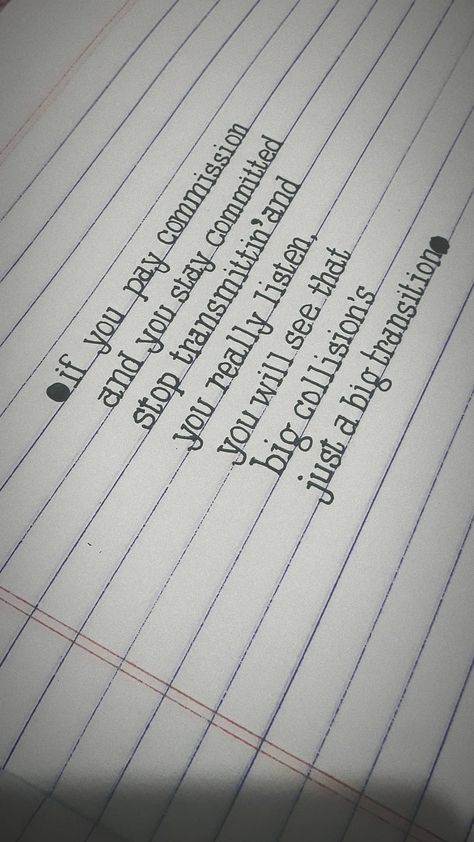 •if you pay commission
and you stay committed
stop transmittin' and
you really listen,
you will see that
big collision's
just a big transition•